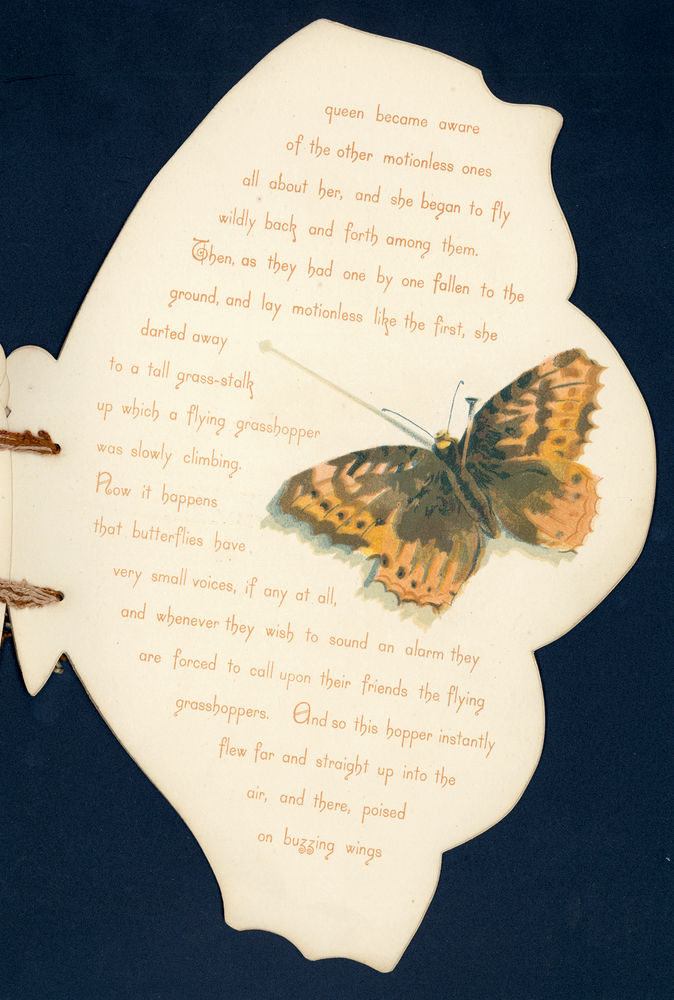 queen became aware
of the other motionless ones
all about her, and she began to fly
wildly back and forth among them.
Then, as they had one by one fallen to the
ground, and lay motionless like the first, she
darted away
to a tall grass-stalk
up which a flying grasshopper
was slowly climbing.
Now it happens
that butterflies have
very small voices, if any at all,
and whenever they wish to sound an alarm they
are forced to call upon their friends the flying
grasshoppers. And so this hopper instantly
flew far and straight up into the
air, and there, poised
on buzzing wings